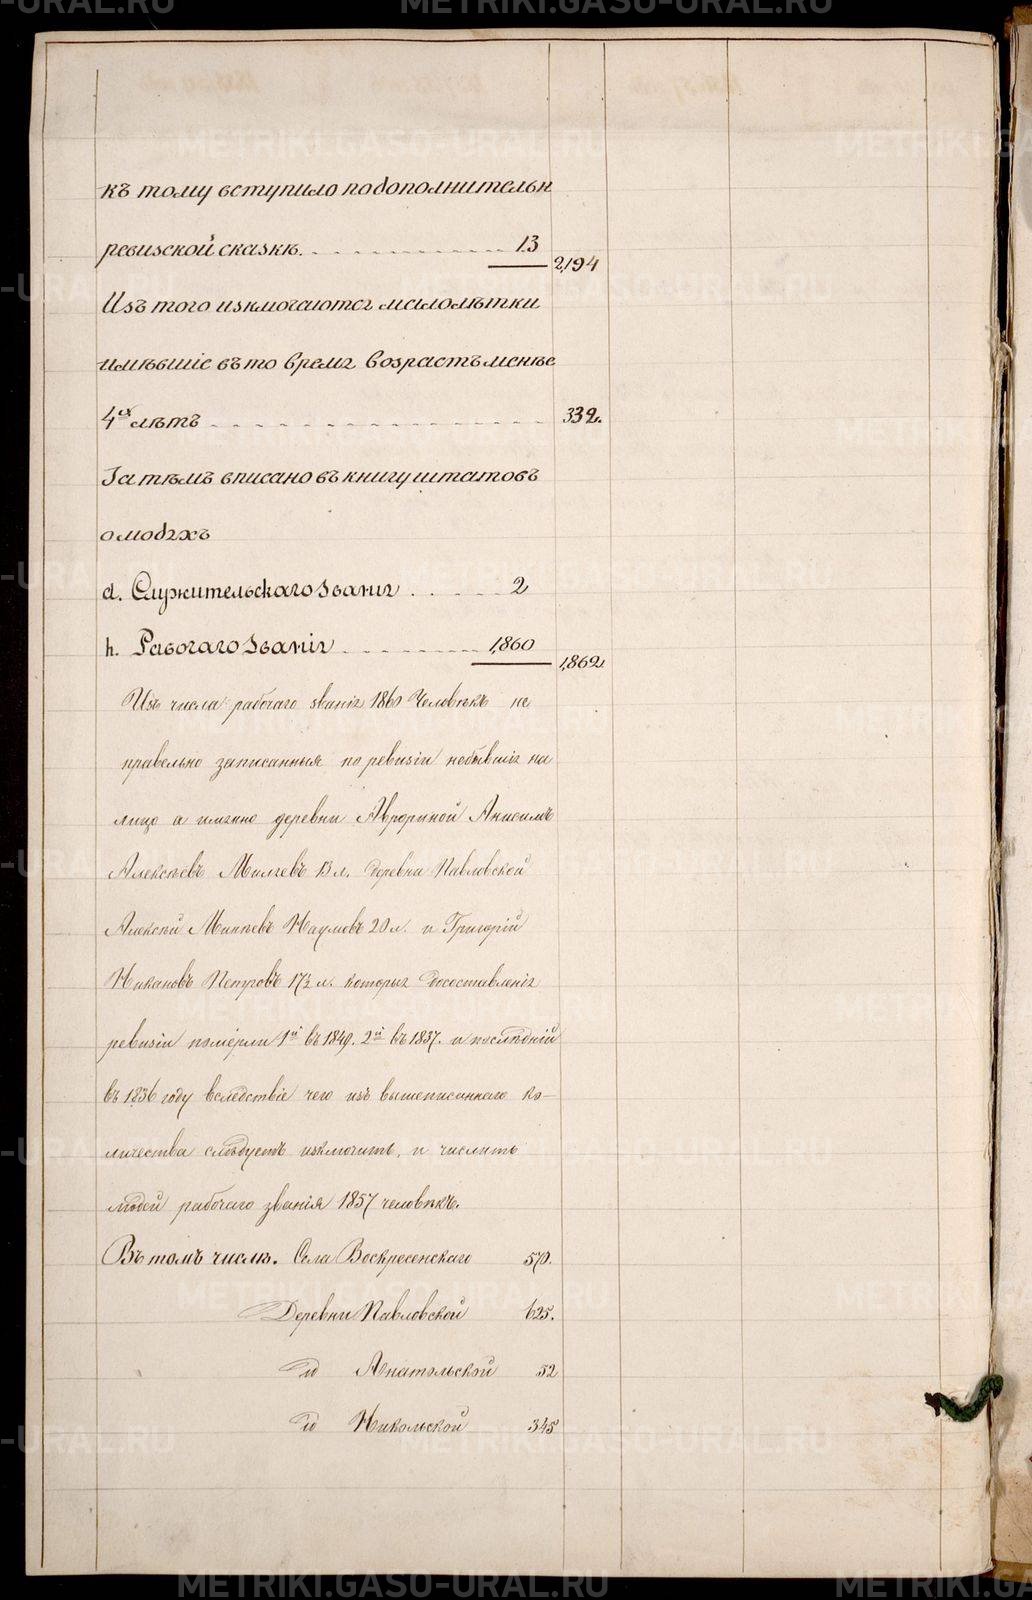 къ тому вступило по дополнительн
ревизской сказкѣ. - - - - - - - - - - - 13
2,194
Изъ того изключаются малолѣтки
имѣвшіе въ то время возрастъ менѣе
4х лѣтъ - - - - - - - - - - - - - - - - - - 332.
Затѣмъ вписано въ книгу штатовъ
о людяхъ
a. Служительскаго званія . . - - - - 2
b. Рабочаго званія - - - - - - - - - 1,860
1,862
Изъ числа рабочаго званія 1860 человѣкъ не
правельно записанныя по ревизіи небывшія на
лицо а имянно деревни Аврориной Анисимъ
Алексѣевъ Миляевъ 13 л. деревни Павловской
Алексѣй Минѣевъ Наумовъ 20 л. и Григорій
Никановъ Петровъ 17½ л. которыя до составленія
ревизіи помёрли 1й въ 1849. 2й въ 1837. и послѣдній
въ 1836 году вследствіе чего изъ вышеписаннаго ко-
личества слѣдуетъ изключить, и числить
людей рабочаго званія 1857 человѣкъ.
Въ томъ числѣ. Села Воскресенскаго 570.
Деревни Павловской 625.
" Анатольской 52
" Никольской 345
METRIKI.GASO-URAL.RU